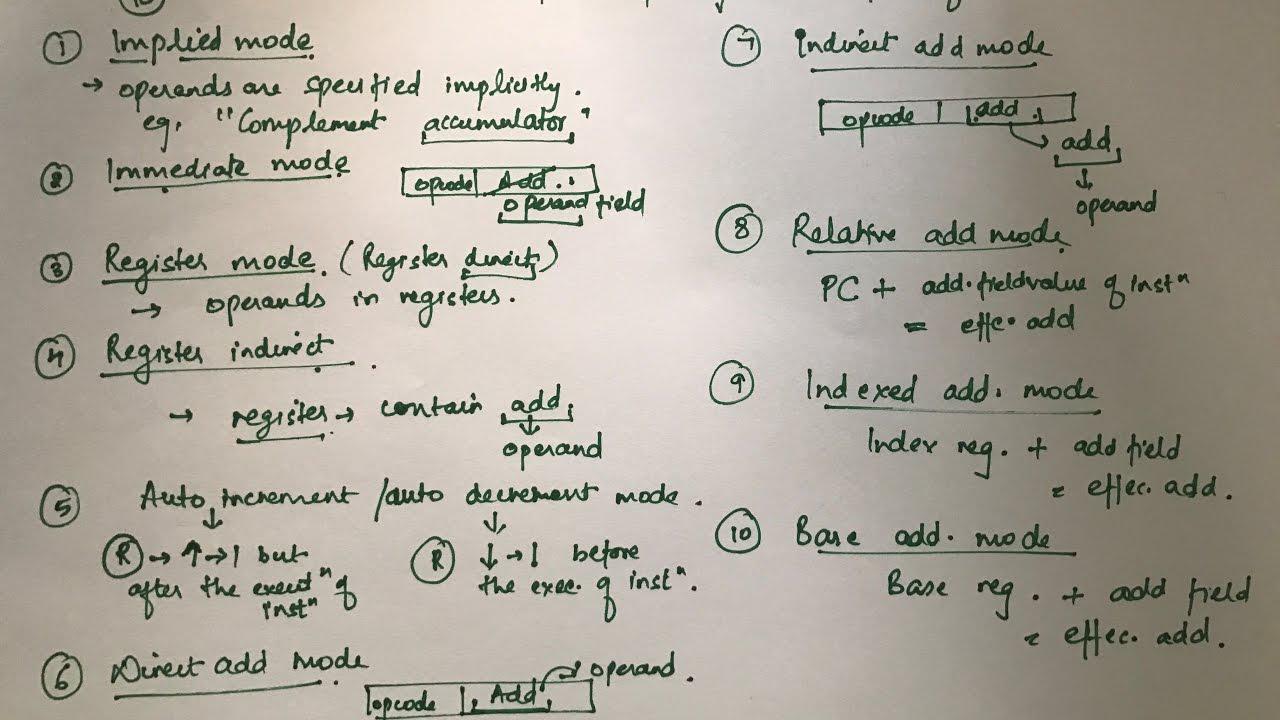 ① Implied mode
→ operands are specified implicitly.
eg. "Complement accumulator"
② Immediate mode
opcode Add..
operand field
③ Register mode. (Register direct)
→ operands in registers.
④ Register indirect.
→ register → contain add.
↓
operand
⑤ Auto increment / auto decrement mode.
↓ ↓
Ⓡ → ↑ → 1 but
after the executⁿ of
instⁿ
Ⓡ ↓ → 1 before
the exec. of instⁿ.
⑥ Direct add mode
opcode Add → operand.
⑦ Indirect add mode
opcode add.
→ add.
↓
operand
⑧ Relative add mode
PC + add. field value of instⁿ
= effe. add
⑨ Indexed add. mode
Index reg. + add field
= effec. add.
⑩ Base add. mode
Base reg. + add field
= effec. add.